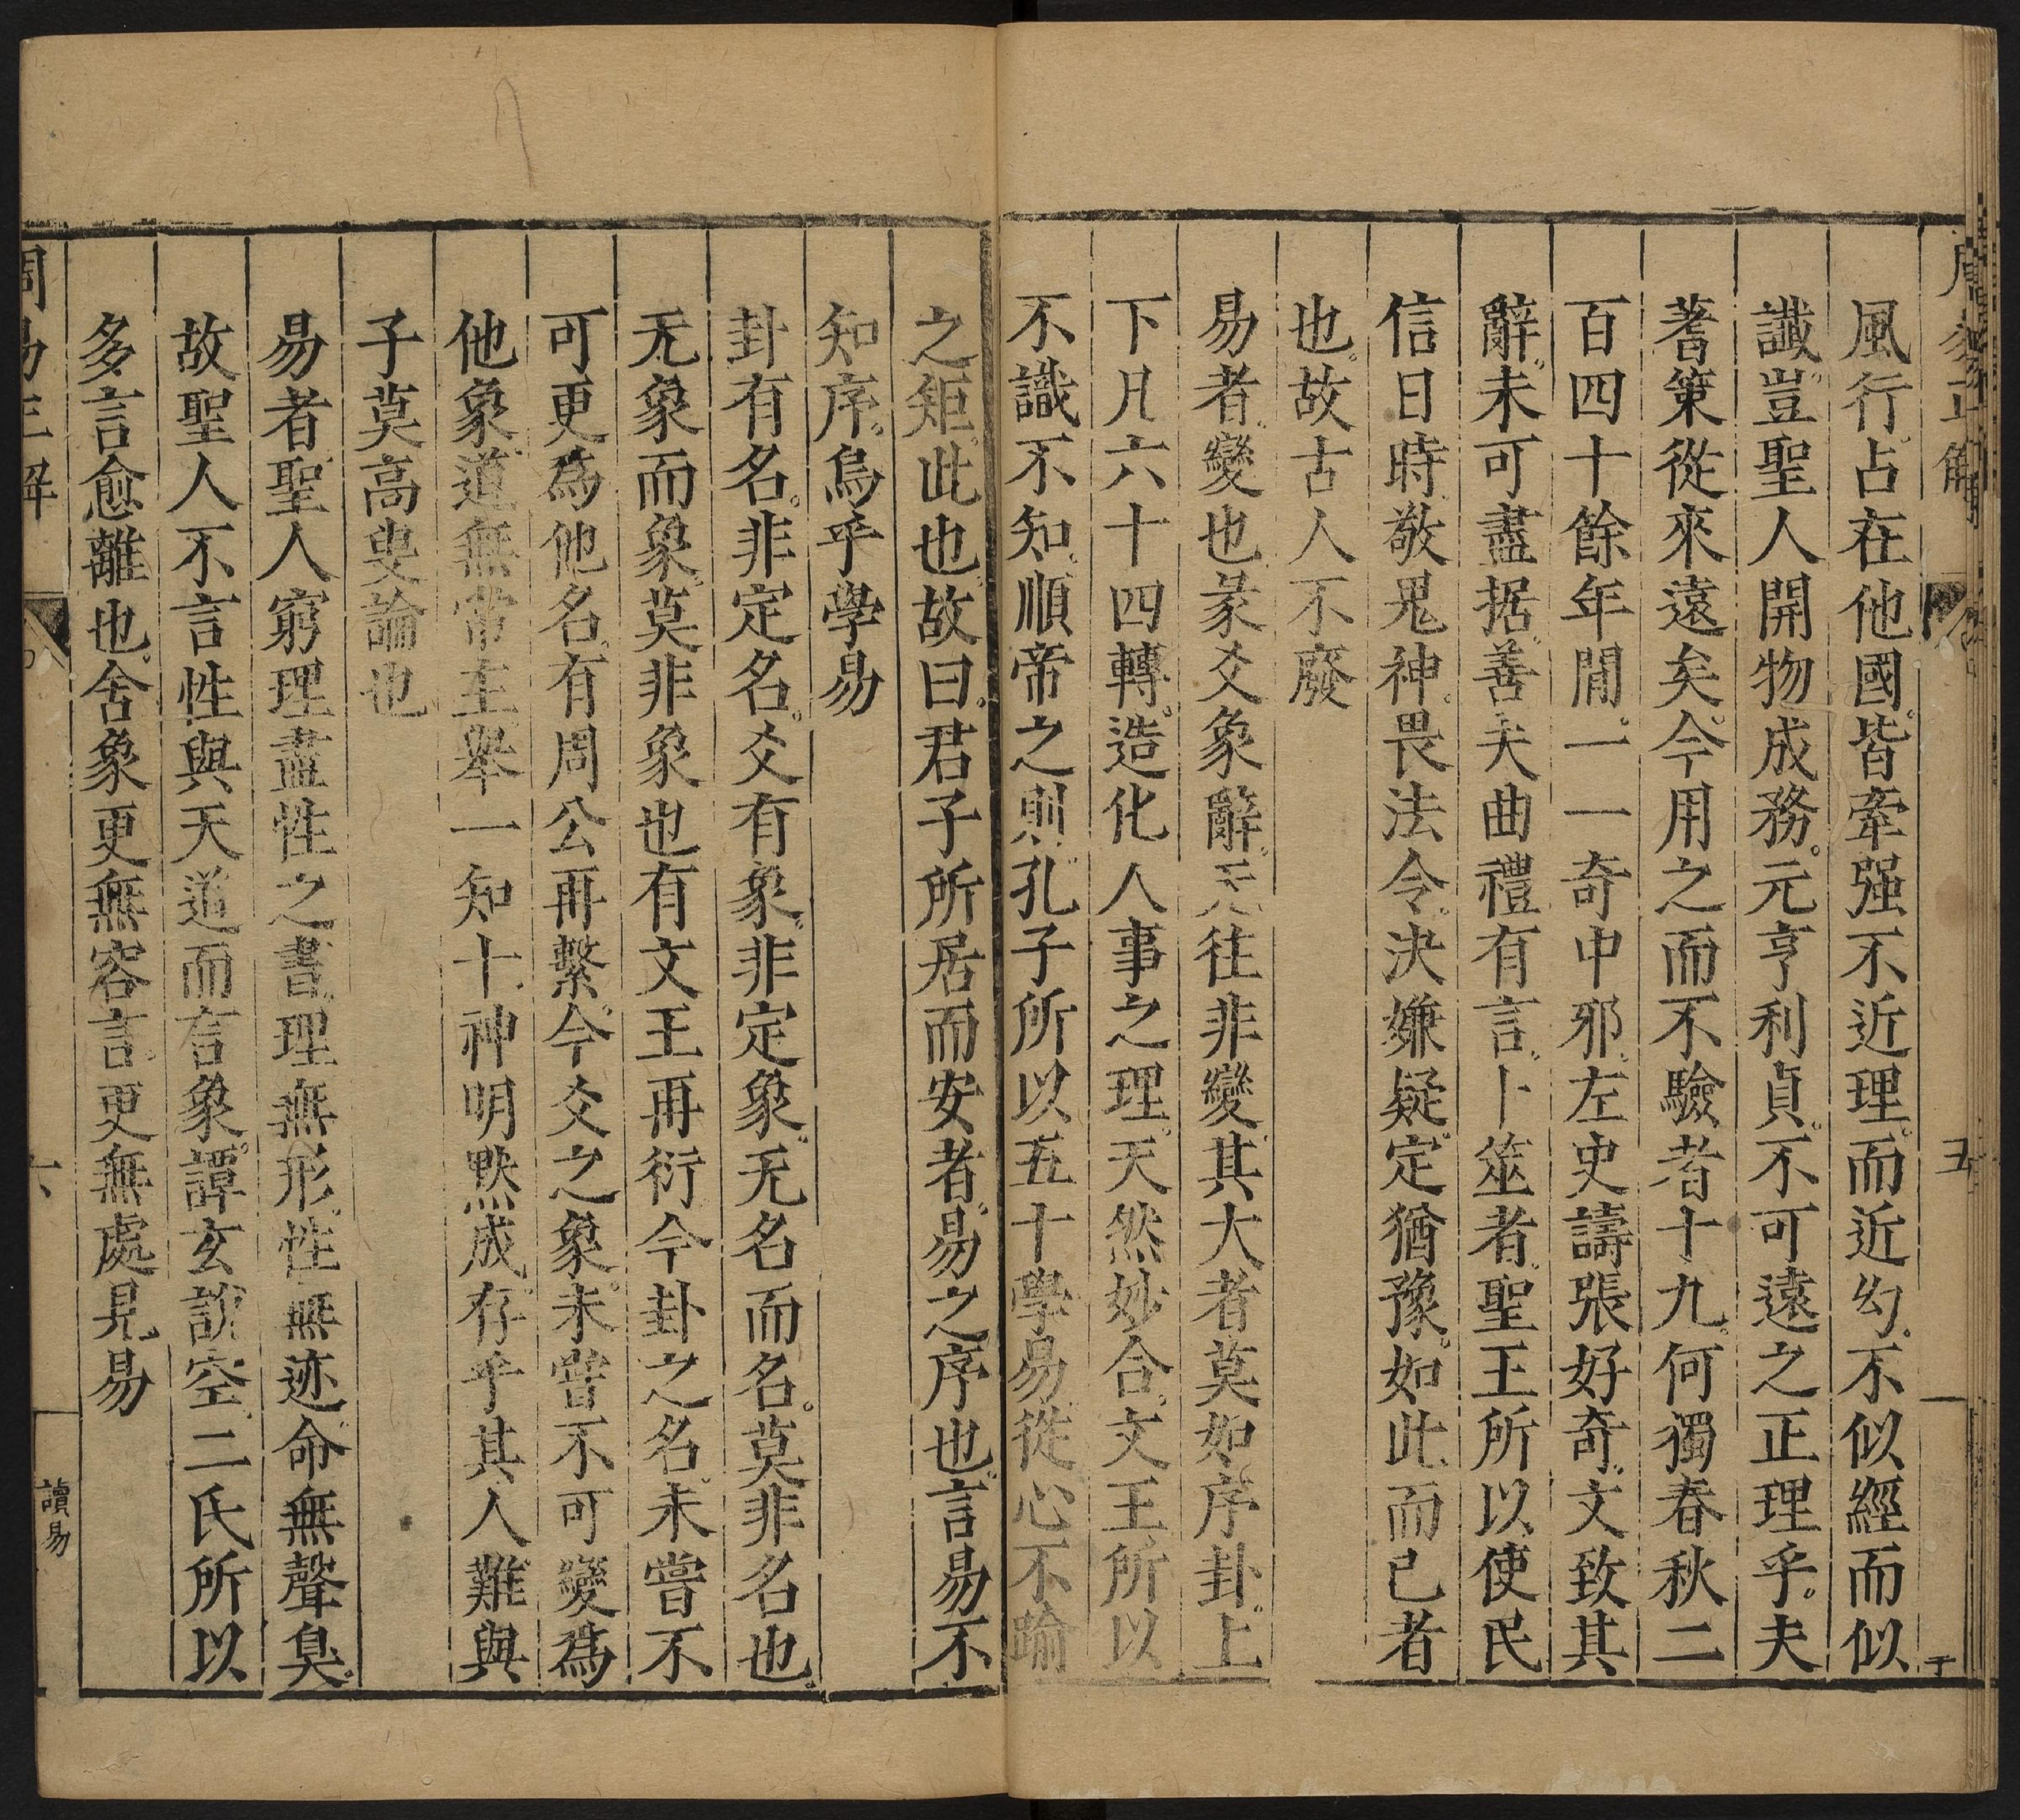 周易正解
五
風行。占在他國。皆牽强不近理。而近幻。不似經而似
讖。豈聖人開物成務。元亨利貞。不可遠之正理乎。夫
蓍策從來遠矣。今用之而不驗者十九。何獨春秋二
百四十餘年間。一一奇中邪。左史譸張好奇。文致其
辭。未可盡据。善夫曲禮有言。卜筮者。聖王所以使民
信日時。敬鬼神。畏法令。決嫌疑。定猶豫。如此而已者
也。故古人不廢
易者。變也。彖爻象辭。无往非變。其大者莫如序卦。上
下凡六十四轉。造化人事之理。天然妙合。文王所以
不識不知。順帝之則。孔子所以五十學易。從心不踰
之矩。此也。故曰。君子所居而安者。易之序也。言易不
知序。烏乎學易
卦有名。非定名。爻有象。非定象。无名而名。莫非名也。
无象而象。莫非象也。有文王再衍。今卦之名。未嘗不
可更為他名。有周公再繫。今爻之象。未嘗不可變為
他象。道無常主。舉一知十。神明默成。存乎其人。難與
子莫高叟論也
易者。聖人窮理盡性之書。理無形。性無迹。命無聲臭。
故聖人不言性與天道而言象。譚玄說空。二氏所以
多言愈離也。舍象更無容言。更無處見易
周易正解
六
讀易